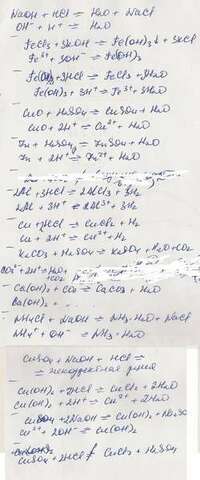 NaOH + HCl = H₂O + NaCl
OH⁻ + H⁺ = H₂O
FeCl₃ + 3KOH = Fe(OH)₃↓ + 3KCl
Fe³⁺ + 3OH⁻ = Fe(OH)₃
+ 3HCl = FeCl₃ + 3H₂O
Fe(OH)₃ + 3H⁺ = Fe³⁺ + 3H₂O
CuO + H₂SO₄ = CuSO₄ + H₂O
CuO + 2H⁺ = Cu²⁺ + H₂O
Zn + H₂SO₄ = ZnSO₄ + H₂O
Zn + 2H⁺ = Zn²⁺ + H₂O
2Al + 3HCl = 2AlCl₃ +
2Al + 3H⁺ = 2Al³⁺ + 3H₂
Cu + 2HCl = CuCl₂ + H₂
Cu + 2H⁺ = Cu²⁺ + H₂
K₂CO₃ + H₂SO₄ = K₂SO₄ + H₂O + CO₂
CO₃²⁻ + 2H⁺ = H₂O +
Ca(OH)₂ + CO₂ = CaCO₃ + H₂O
NH₄Cl + OH⁻ = NH₃·H₂O + NaCl
NH₄⁺ + OH⁻ = NH₃·H₂O
CuSO₄ + NaOH + HCl =
=
Cu(OH)₂ + 2HCl = CuCl₂ + 2H₂O
Cu(OH)₂ + 2H⁺ = Cu²⁺ + 2H₂O
CuSO₄ + 2NaOH = Cu(OH)₂ + Na₂SO₄
Cu²⁺ + 2OH⁻ = Cu(OH)₂
CuSO₄ + 2HCl ≠ CuCl₂ + H₂SO₄